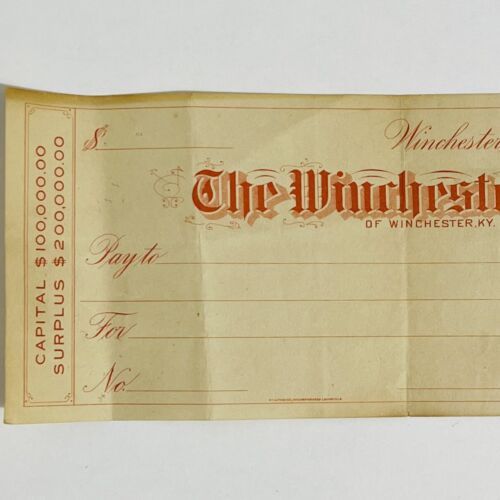 CAPITAL $100,000.00
SURPLUS $200,000.00
$
Winchester
The Winchest
OF WINCHESTER, KY.
Pay to
For
No.